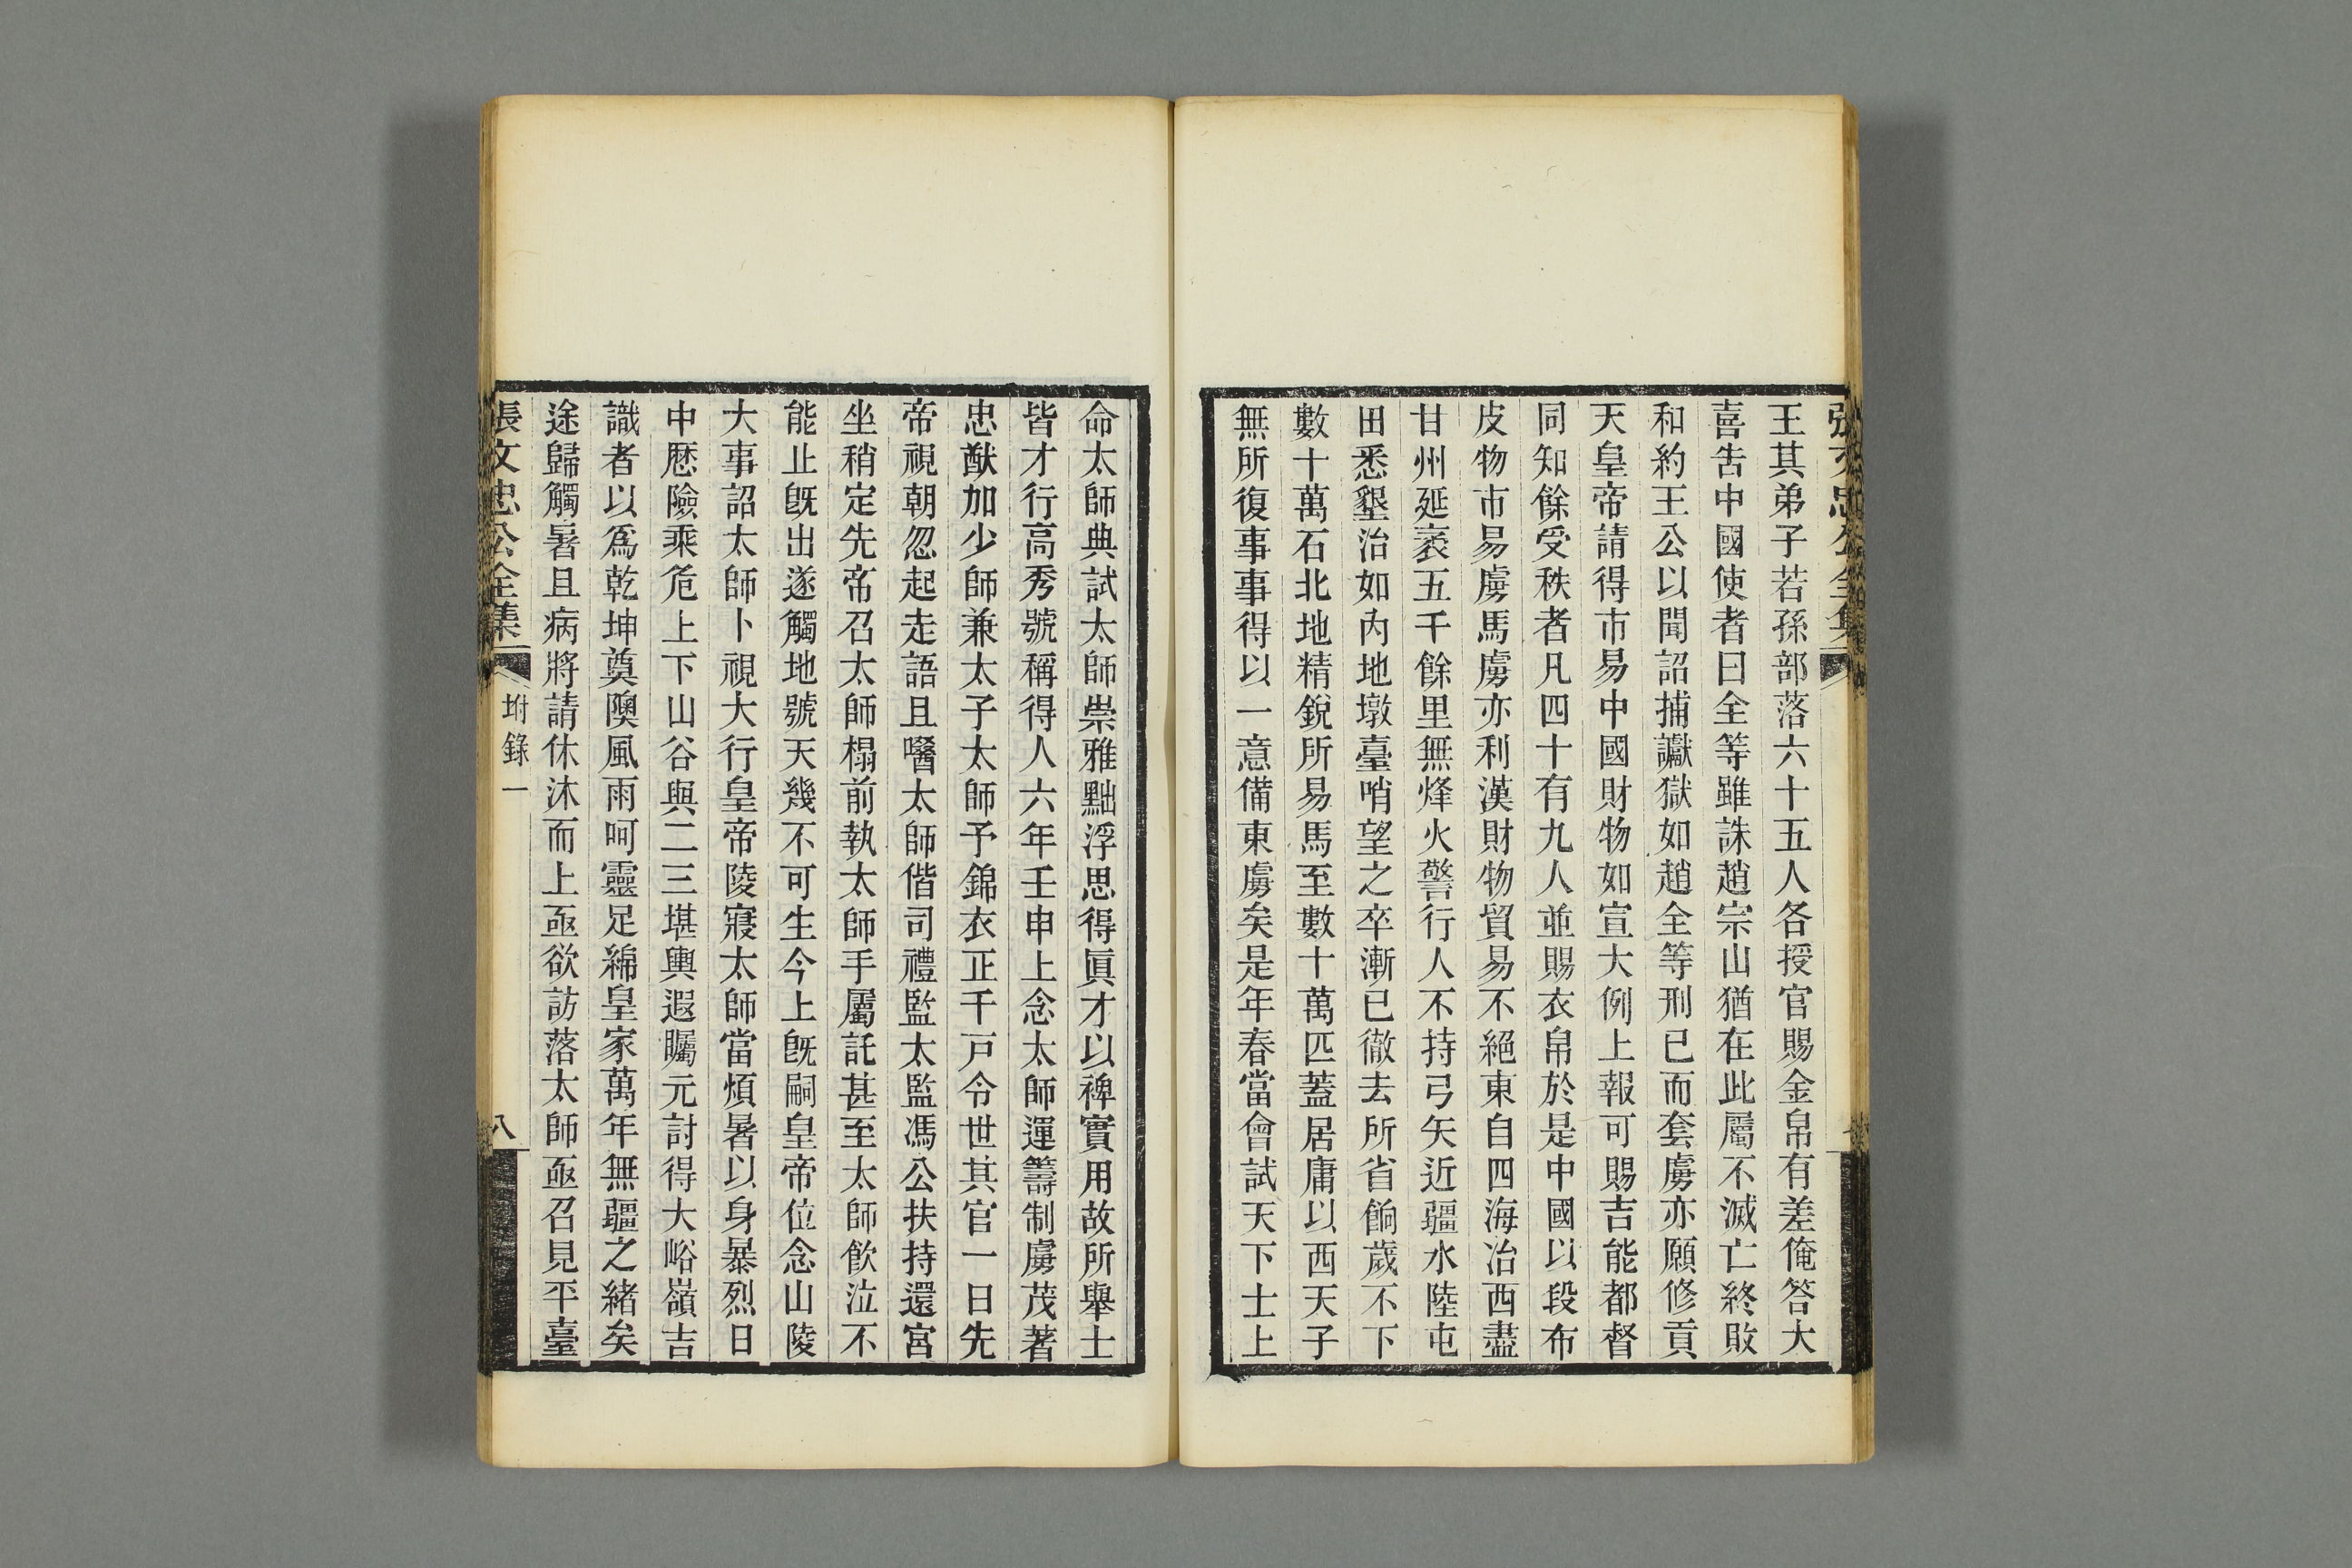 張文忠公全集
王其弟子若孫部落六十五人各授官賜金帛有差俺答大
喜告中國使者曰全等雖誅趙宗山猶在此屬不滅亡終敗
和約王公以聞詔捕讞獄如趙全等刑已而套虜亦願修貢
天皇帝請得市易中國財物如宣大例上報可賜吉能都督
同知餘受秩者凡四十有九人並賜衣帛於是中國以段布
皮物市易虜馬虜亦利漢財物貿易不絕東自四海冶西盡
甘州延袤五千餘里無烽火警行人不持弓矢近疆水陸屯
田悉墾治如內地墩臺哨望之卒漸已徹去所省餉歲不下
數十萬石北地精銳所易馬至數十萬匹蓋居庸以西天子
無所復事事得以一意備東虜矣是年春當會試天下士上
命太師典試太師崇雅黜浮思得眞才以裨實用故所舉士
皆才行高秀號稱得人六年壬申上念太師運籌制虜茂著
忠猷加少師兼太子太師予錦衣正千戸令世其官一日先
帝視朝忽起走語且嚘太師偕司禮監太監馮公扶持還宮
坐稍定先帝召太師榻前執太師手屬託甚至太師飮泣不
能止旣出遂觸地號天幾不可生今上旣嗣皇帝位念山陵
大事詔太師卜視大行皇帝陵寢太師當煩暑以身暴烈日
中歷險乘危上下山谷與二三堪輿遐矚元討得大峪嶺吉
識者以爲乾坤奠隩風雨呵靈足綿皇家萬年無疆之緒矣
途歸觸暑且病將請休沐而上亟欲訪落太師亟召見平臺
張文忠公全集
坿錄一
八